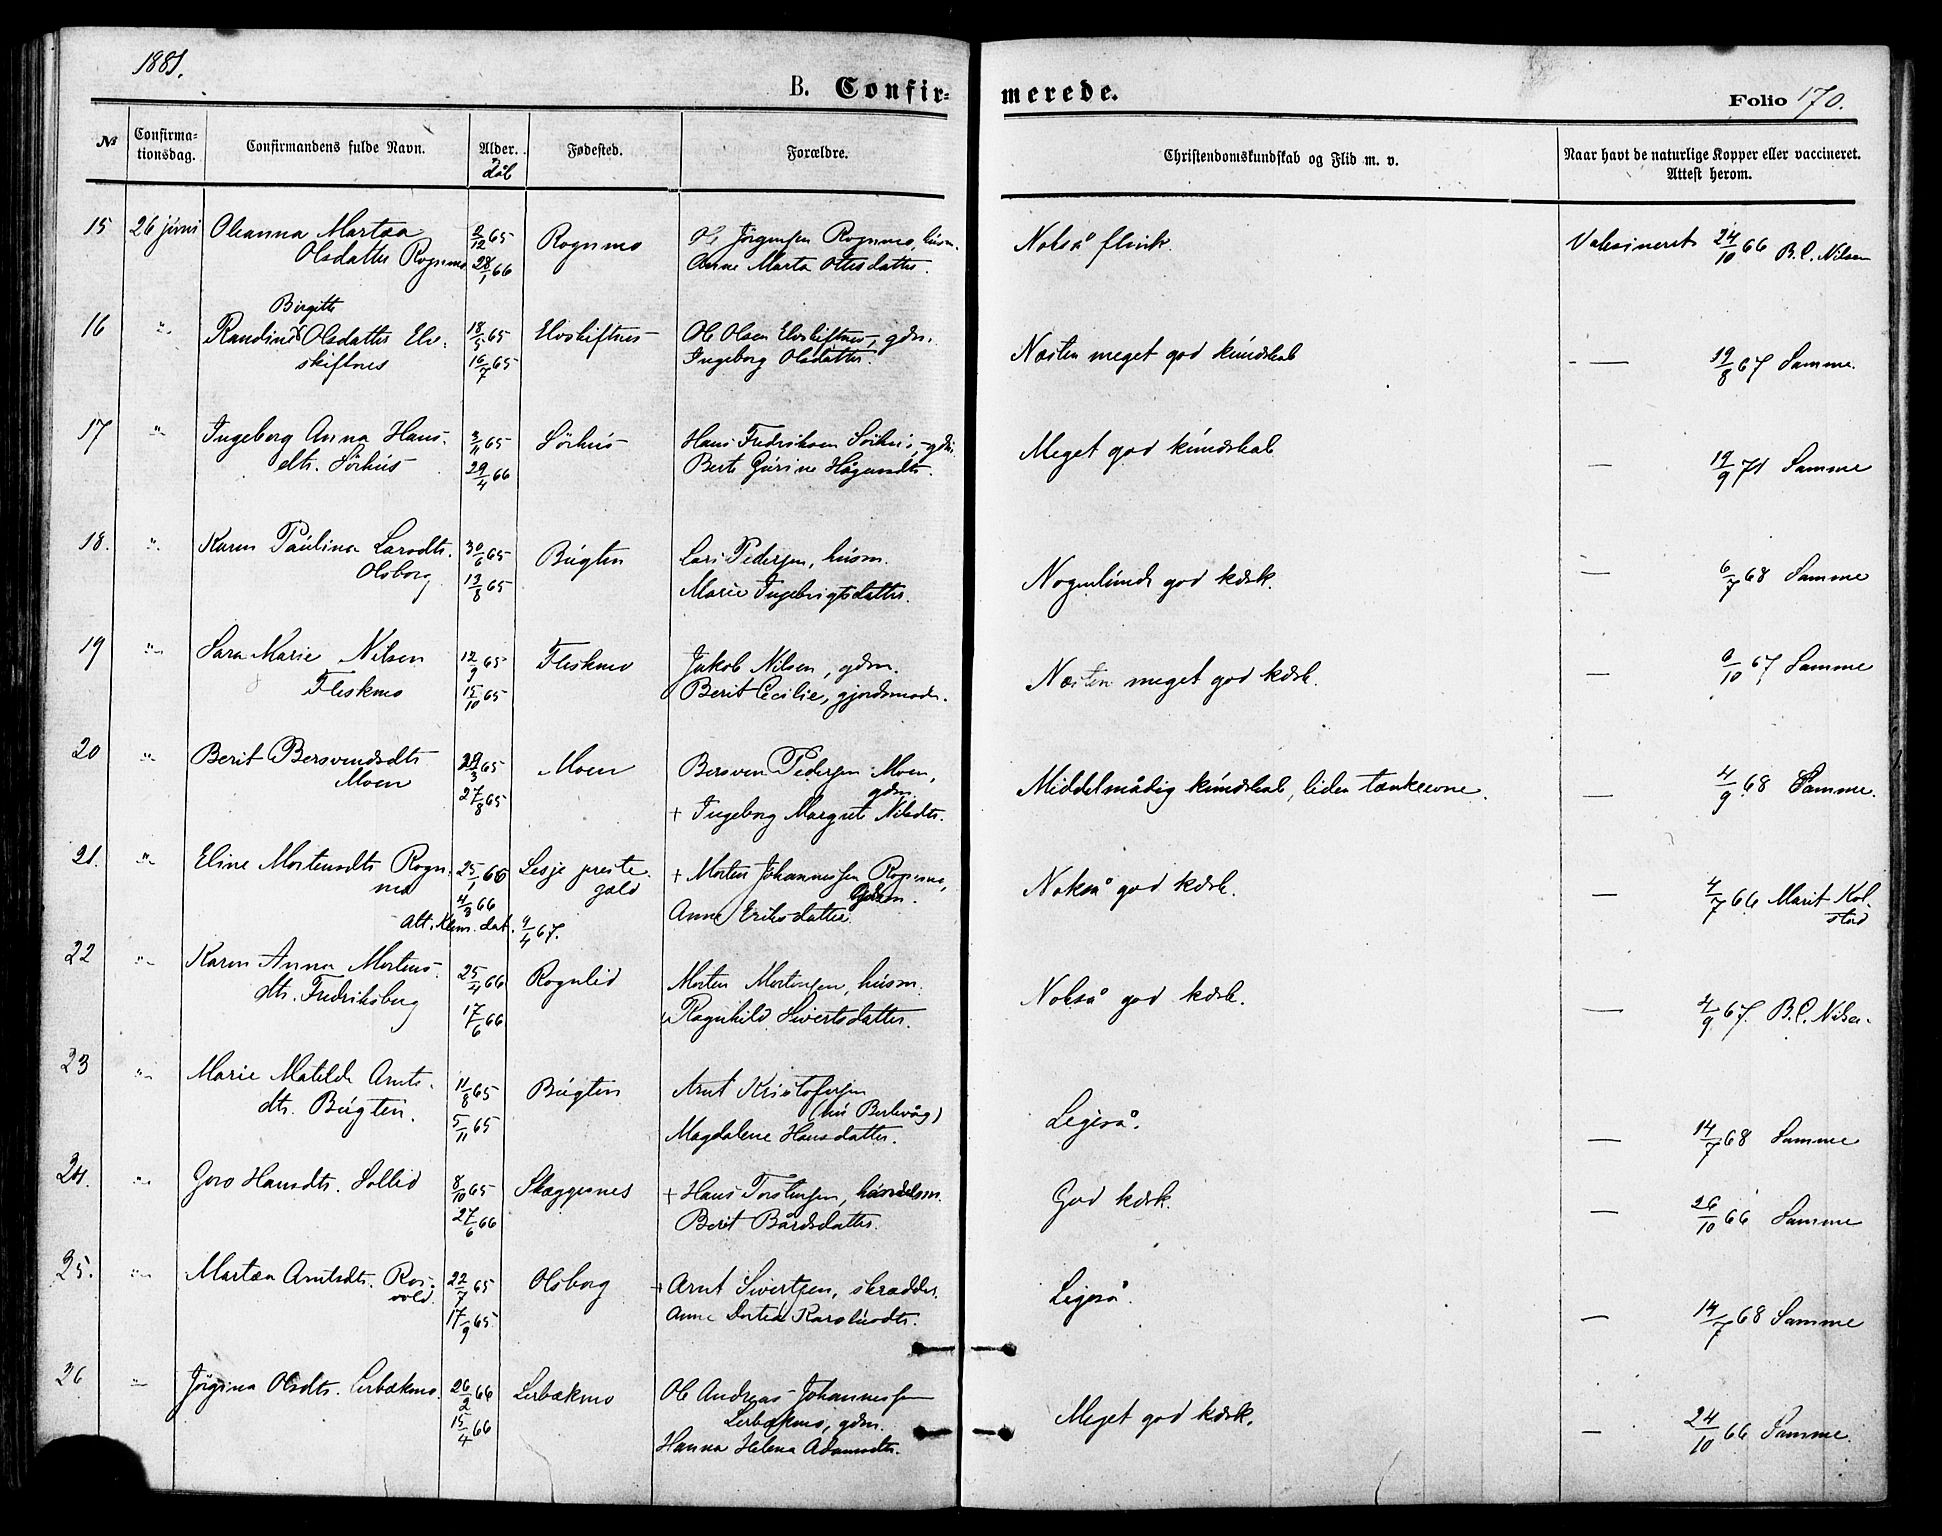 1881.
B. Confir-
merede.
Folio 170.
№ Confirma-tionsdag. Confirmandens fulde Navn. Alder. Dåb Fødested. Forældre. Christendomskundskab og Flid m. v. Naar havt de naturlige Kopper eller vaccineret. Attest herom.
15 26 juni Oleanna Martæa 9/12 65 Rognmo Ole Jørgensen Rognmo, husm. Nokså flink. Vaksineret 24/10 66 B.C. Nilsen
Olsdatter Rognmo 28/1 66 Anne Marta Ottesdatter.
Birgitte
16 " Randine Olsdatter Elv- 18/5 65 Elvskiftnes Ole Olsen Elvskiftnes, gdm. Næsten meget god kundskab - — 19/8 67 Samme.
skiftnes 16/7 65 Ingeborg Olsdatter.
17 " Ingeborg Anna Hans- 3/11 65 Sörhus Hans Fredriksen Sörhus, gdm. Meget god kundskab — 19/9 71 Samme
dtr. Sörhus 29/4 66 Berte Gurine Hågensdtr.
18. " Karen Paulina Larsdtr. 30/6 65 Bugten Lars Pedersen, husm. Nogenlunde god kdsk. — 6/7 68 Samme
Olsborg 13/8 65 Marie Ingebrigtsdatter.
19 " Sara Marie Nilsen 12/9 65 Fleskmo Jakob Nilsen, gdm. Næsten meget god kdsk. — 6/10 67 Samme
Fleskmo 15/10 65 Berit Cecilie, gjordsmoder.
20 " Berit Bersvendsdtr. 29/3 65 Moen Bersven Pedersen Moen, gdm. Middelmådig kundskab, liden tænkeevne. — 4/9 68 Samme.
Moen 27/8 65 + Ingeborg Margrete Nilsdtr.
21. " Eline Mortensdtr. Rogn- 25/1 66 Lesje preste- + Morten Johannessen Rognmo, Nokså god kdsk. — 4/7 66 Marit Kol-
mo 4/3 66 gjeld Gdm. stad
Anne Eriksdatter.
Att. Klem. dat. 4/4 67.
22 " Karen Anna Mortens- 25/4 66 Rognlid Morten Mortensen, husm. Nokså god kdsk. — 4/9 67. B.C. Nilsen
dtr. Fredriksberg 17/6 66 Ragnhild Sivertsdatter.
23 " Marie Matilde Arnts- 11/8 65 Bugten Arnt Kristofersen Ligeså. — 14/7 68 Samme
dtr. Bugten. 5/11 65 (nu Berlevåg)
Magdalene Hansdatter.
24. " Goro Hansdtr. Sollid 8/10 65 Skæggesnes + Hans Torstensen, handelsm. God kdsk. — 26/10 66 Samme
27/6 66 Berit Bårdsdatter.
25. " Martæa Arntsdtr. Ros- 22/7 65 Olsborg + Arnt Sivertsen, skrædder. Ligeså. — 14/7 68 Samme
vold. 17/9 65 Anne Dortea Karolusdtr.
26 " Jörgina Olsdtr. Lerbækmo. 26/2 66 Lerbækmo Ole Andreas Johannessen Meget god kdsk. — 24/10 66 Samme.
15/4 66 Lerbækmo, gdm.
Hanna Helena Adamsdtr.